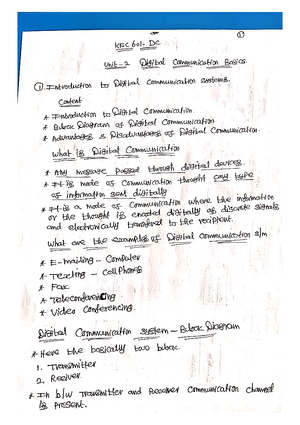 ①
KEC 601- DC
Unit-2 Digital Communication Basics
① Introduction to Digital Communication Systems.
Content
* Introduction to Digital Communication.
* Block Diagram of Digital Communication
* Advantages & Disadvantages of Digital Communication.
What is Digital Communication
* Any message passed through digital devices.
* It is mode of Communication thought any type of information sent digitally
* It is a mode of Communication where the information
or the thought is encoded digitally as discrete signals
and electronically transferred to the recipient.
What are the examples of Digital Communication s/m.
* E-mailing - Computer
* Texting - Cell Phones
* Fax
* Teleconferencing
* Video Conferencing.
Digital Communication System - Block Diagram
* Here the basically two block.
1. Transmitter
2. Reciver.
* In b/w Transmitter and Receiver Communication channel
is present.